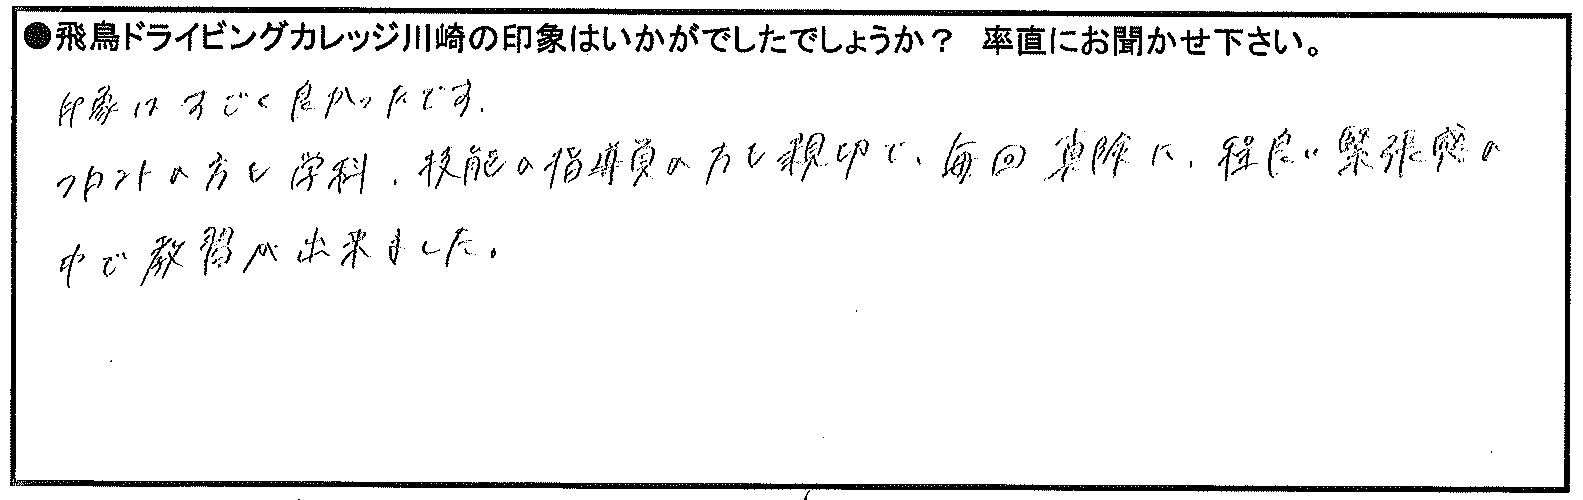 ●飛鳥ドライビングカレッジ川崎の印象はいかがでしたでしょうか？　率直にお聞かせ下さい。
印象はすごく良かったです.
フロントの方も学科、技能の指導員の方も親切で、毎回真険に、程良い緊張感の
中で教習が出来ました。